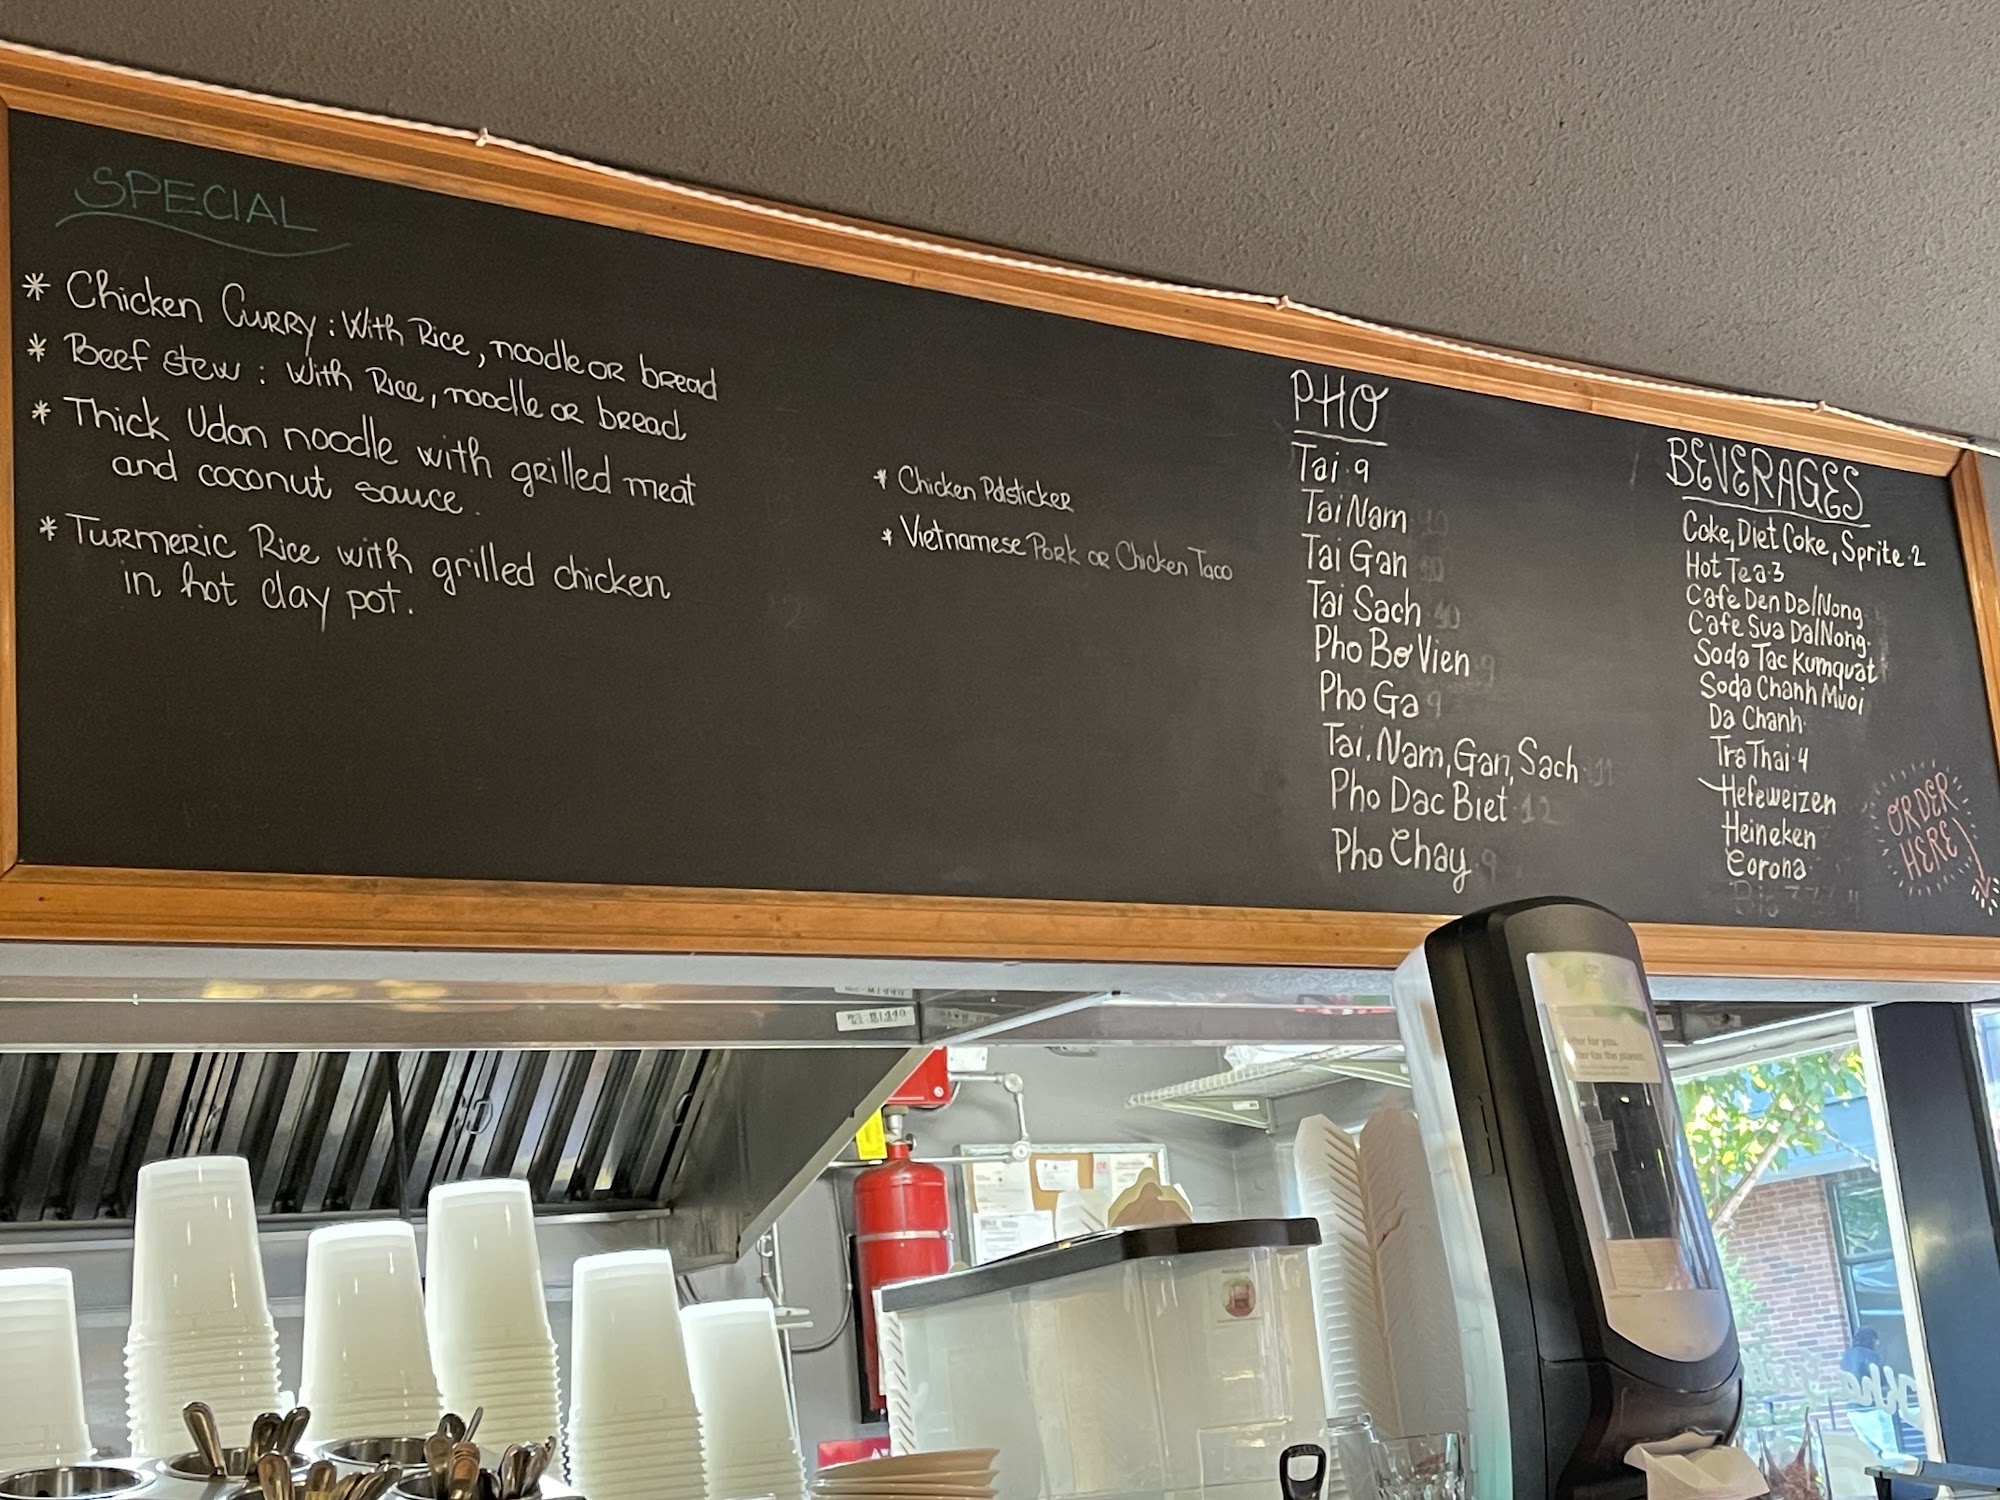 SPECIAL
* Chicken Curry : With Rice, noodle or bread
* Beef stew : With Rice, noodle or bread
* Thick Udon noodle with grilled meat
and coconut sauce.
* Turmeric Rice with grilled chicken
in hot clay pot.
* Chicken Potsticker
* Vietnamese Pork or Chicken Taco
PHO
Tai · 9
Tai Nam
Tai Gan
Tai Sach 10
Pho Bo Vien 9
Pho Ga 9
Tai, Nam, Gan, Sach 11
Pho Dac Biet 12
Pho Chay 9
BEVERAGES
Coke, Diet Coke, Sprite · 2
Hot Tea · 3
Cafe Den Da/Nong
Cafe Sua Da/Nong
Soda Tac Kumquat
Soda Chanh Muoi
Da Chanh
Tra Thai · 4
Hefeweizen
Heineken
Corona
ORDER
HERE